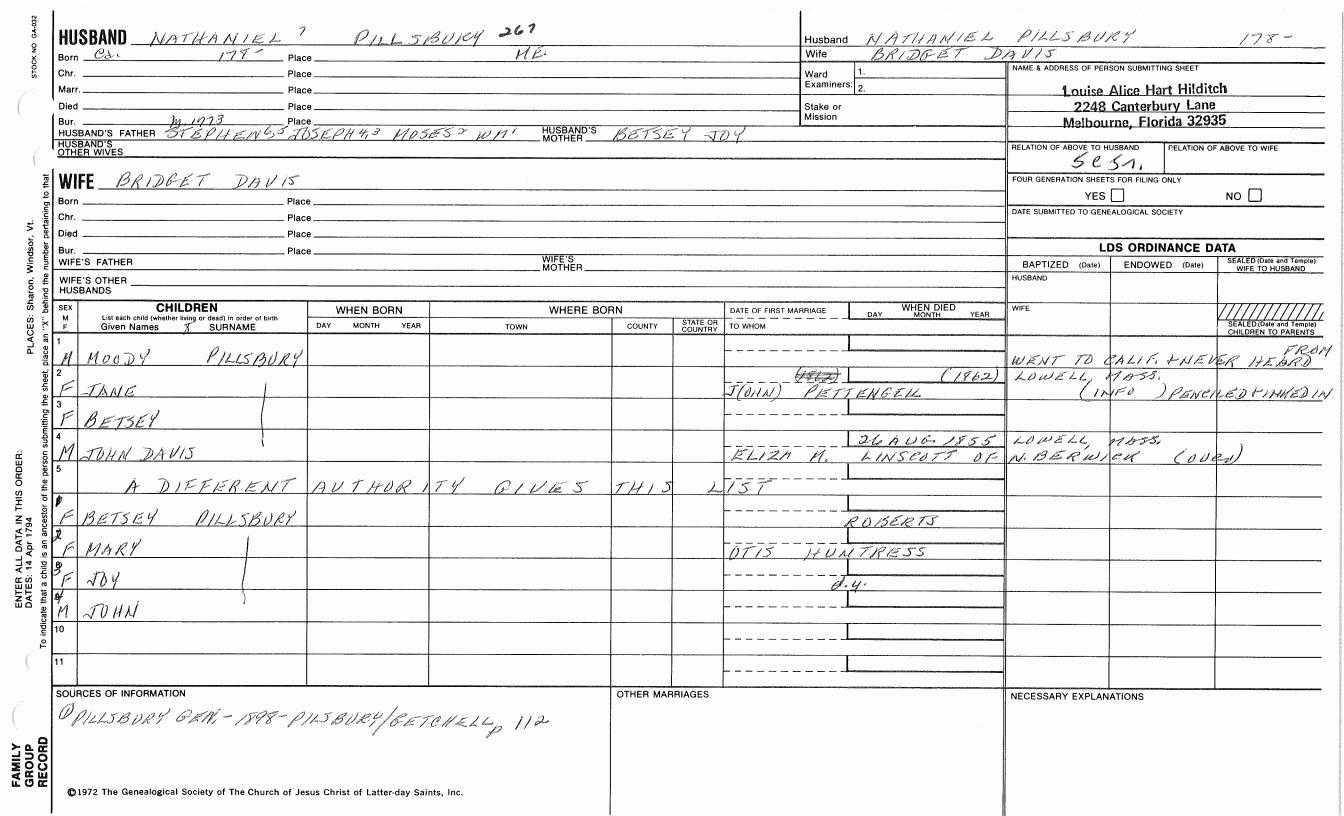 STOCK NO GA-032
HUSBAND NATHANIEL ? PILLSBURY 267
Born Ca. 178- Place ME.
Chr. Place
Marr. Place
Died Place
Bur. 1773 Place
HUSBAND'S FATHER STEPHEN JOSEPH MOSES WM HUSBAND'S MOTHER BETSEY JOY
HUSBAND'S OTHER WIVES
Husband NATHANIEL PILLSBURY 178-
Wife BRIDGET DAVIS
Ward Examiners: 1.
2.
Stake or Mission
NAME & ADDRESS OF PERSON SUBMITTING SHEET
Louise Alice Hart Hilditch
2248 Canterbury Lane
Melbourne, Florida 32935
RELATION OF ABOVE TO HUSBAND RELATION OF ABOVE TO WIFE
5C5R.
FOUR GENERATION SHEETS FOR FILING ONLY
YES NO
DATE SUBMITTED TO GENEALOGICAL SOCIETY
WIFE BRIDGET DAVIS
Born Place
Chr. Place
Died Place
Bur. Place
WIFE'S FATHER WIFE'S MOTHER
WIFE'S OTHER HUSBANDS
LDS ORDINANCE DATA
BAPTIZED (Date) ENDOWED (Date) SEALED (Date and Temple) WIFE TO HUSBAND
HUSBAND
WIFE
SEALED (Date and Temple) CHILDREN TO PARENTS
SEX M F CHILDREN WHEN BORN WHERE BORN DATE OF FIRST MARRIAGE WHEN DIED
List each child (whether living or dead) in order of birth
Given Names X SURNAME DAY MONTH YEAR TOWN COUNTY STATE OR COUNTRY TO WHOM DAY MONTH YEAR
1 M MOODY PILLSBURY WENT TO CALIF. & NEVER HEARD FROM
2 (1862) (1862) LOWELL, MASS.
F JANE J(OHN) PETTENGELL (INFO) PENCILED & INKED IN
3 F BETSEY
4 26 AUG. 1855 LOWELL, MASS.
M JOHN DAVIS ELIZA M. LINSCOTT OF N. BERWICK (OVER)
5
A DIFFERENT AUTHORITY GIVES THIS LIST
1 F BETSEY PILLSBURY ROBERTS
2 F MARY OTIS HUNTRESS
3 F JOY d.y.
4 M JOHN
10
11
SOURCES OF INFORMATION OTHER MARRIAGES NECESSARY EXPLANATIONS
① PILLSBURY GEN. - 1898 - PILSBURY/GETCHELL p 112
©1972 The Genealogical Society of The Church of Jesus Christ of Latter-day Saints, Inc.
FAMILY GROUP RECORD
ENTER ALL DATA IN THIS ORDER:
DATES: 14 Apr 1794
PLACES: Sharon, Windsor, Vt.
To indicate that a child is an ancestor of the person submitting the sheet, place an "X" behind the number pertaining to that